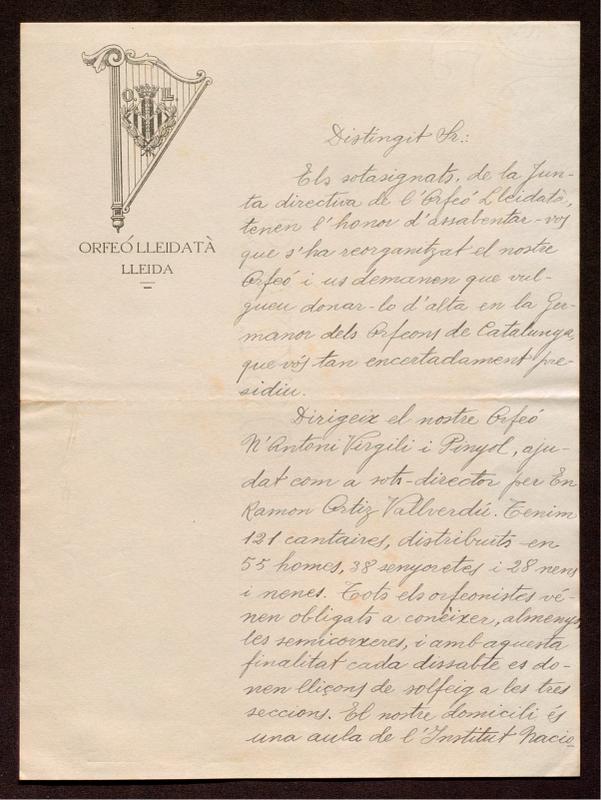 O LL
ORFEÓ LLEIDATÀ
LLEIDA
Distingit Sr.:
Els sotasignats, de la Jun-
ta directiva de l'Orfeó Lleidatà,
tenen l'honor d'assabentar-vos
que s'ha reorganitzat el nostre
Orfeó i us demanen que vul-
gueu donar-lo d'alta en la Ger-
manor dels Orfeons de Catalunya,
que vós tan encertadament pre-
sidiu.
Dirigeix el nostre Orfeó
N'Antoni Virgili i Pinyol, aju-
dat com a sots-director per En
Ramon Ortiz Vallverdú. Tenim
121 cantaires, distribuïts en
55 homes, 38 senyoretes i 28 nens
i nenes. Tots els orfeonistes vé-
nen obligats a conèixer, almenys,
les semicorxeres, i amb aquesta
finalitat cada dissabte es do-
nen lliçons de solfeig a les tres
seccions. El nostre domicili és
una aula de l'Institut Nacio